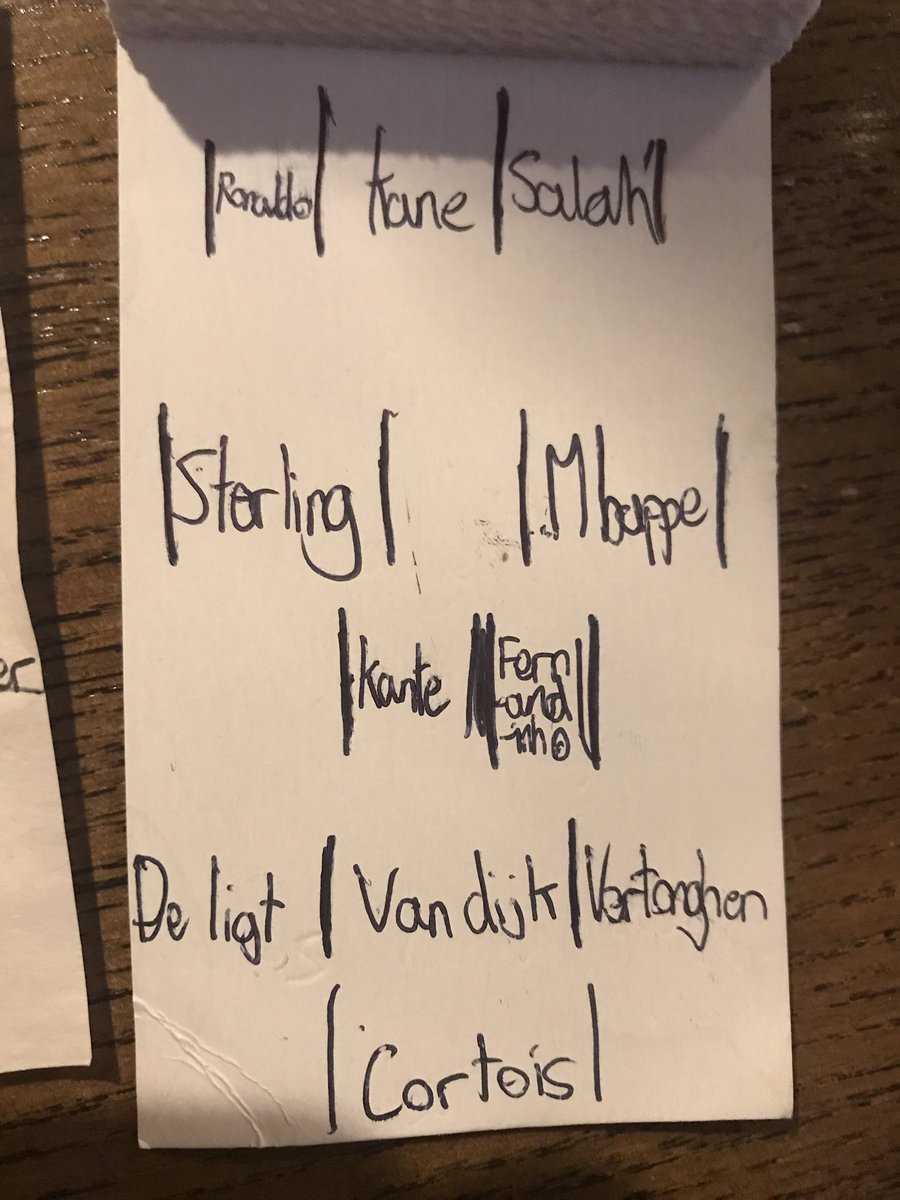 Ronaldo Kane Salah
Sterling Mbappe
Kante Fern
-and
-inho
De ligt Van dijk Vertonghen
Cortois
er